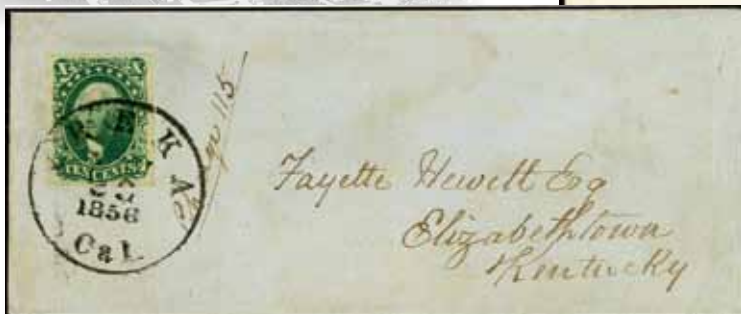 X X
TEN CENTS
REKA
1858
Cal.
115
Fayette Hewett Esq
Elizabethtown
Kentucky